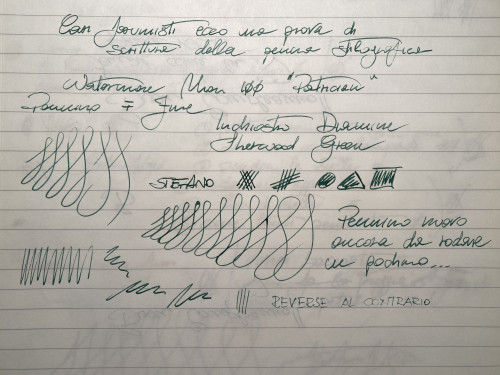 Cari Forumisti ecco una prova di
scrittura della penna stilografica
Waterman Man 100 "Patrician"
Pennino F Fine
Inchiostro Diamine
Sherwood Green
STEFANO
Pennino nuovo
ancora da rodare
un pochino...
REVERSE AL CONTRARIO